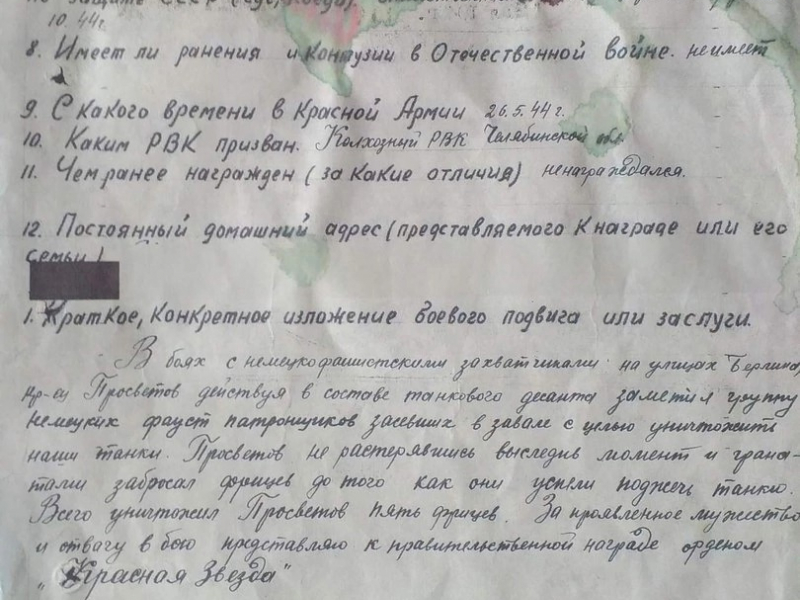 по защите СССР (где, когда).
10.44г.
8. Имеет ли ранения и контузии в Отечественной войне. неимеет
9. С какого времени в Красной Армии 26.5.44г.
10. Каким РВК призван. Колхозный РВК Челябинской обл
11. Чем ранее награжден (за какие отличия) ненаграждался.
12. Постоянный домашний адрес (представляемого к награде или его
семьи)
1. Краткое, конкретное изложение боевого подвига или заслуги.
В боях с немецкофашистскими захватчиками на улицах Берлина,
кр-ец Просветов действуя в составе танкового десанта заметил группу
немецких фауст патронщиков засевших в завале с целью уничтожить
наши танки. Просветов не растерявшись выследив момент и грана-
тами забросал фрицев до того как они успели поджечь танки.
Всего уничтожил Просветов пять фрицев. За проявленное мужество
и отвагу в бою представляю к правительственной награде орденом
„Красная Звезда"